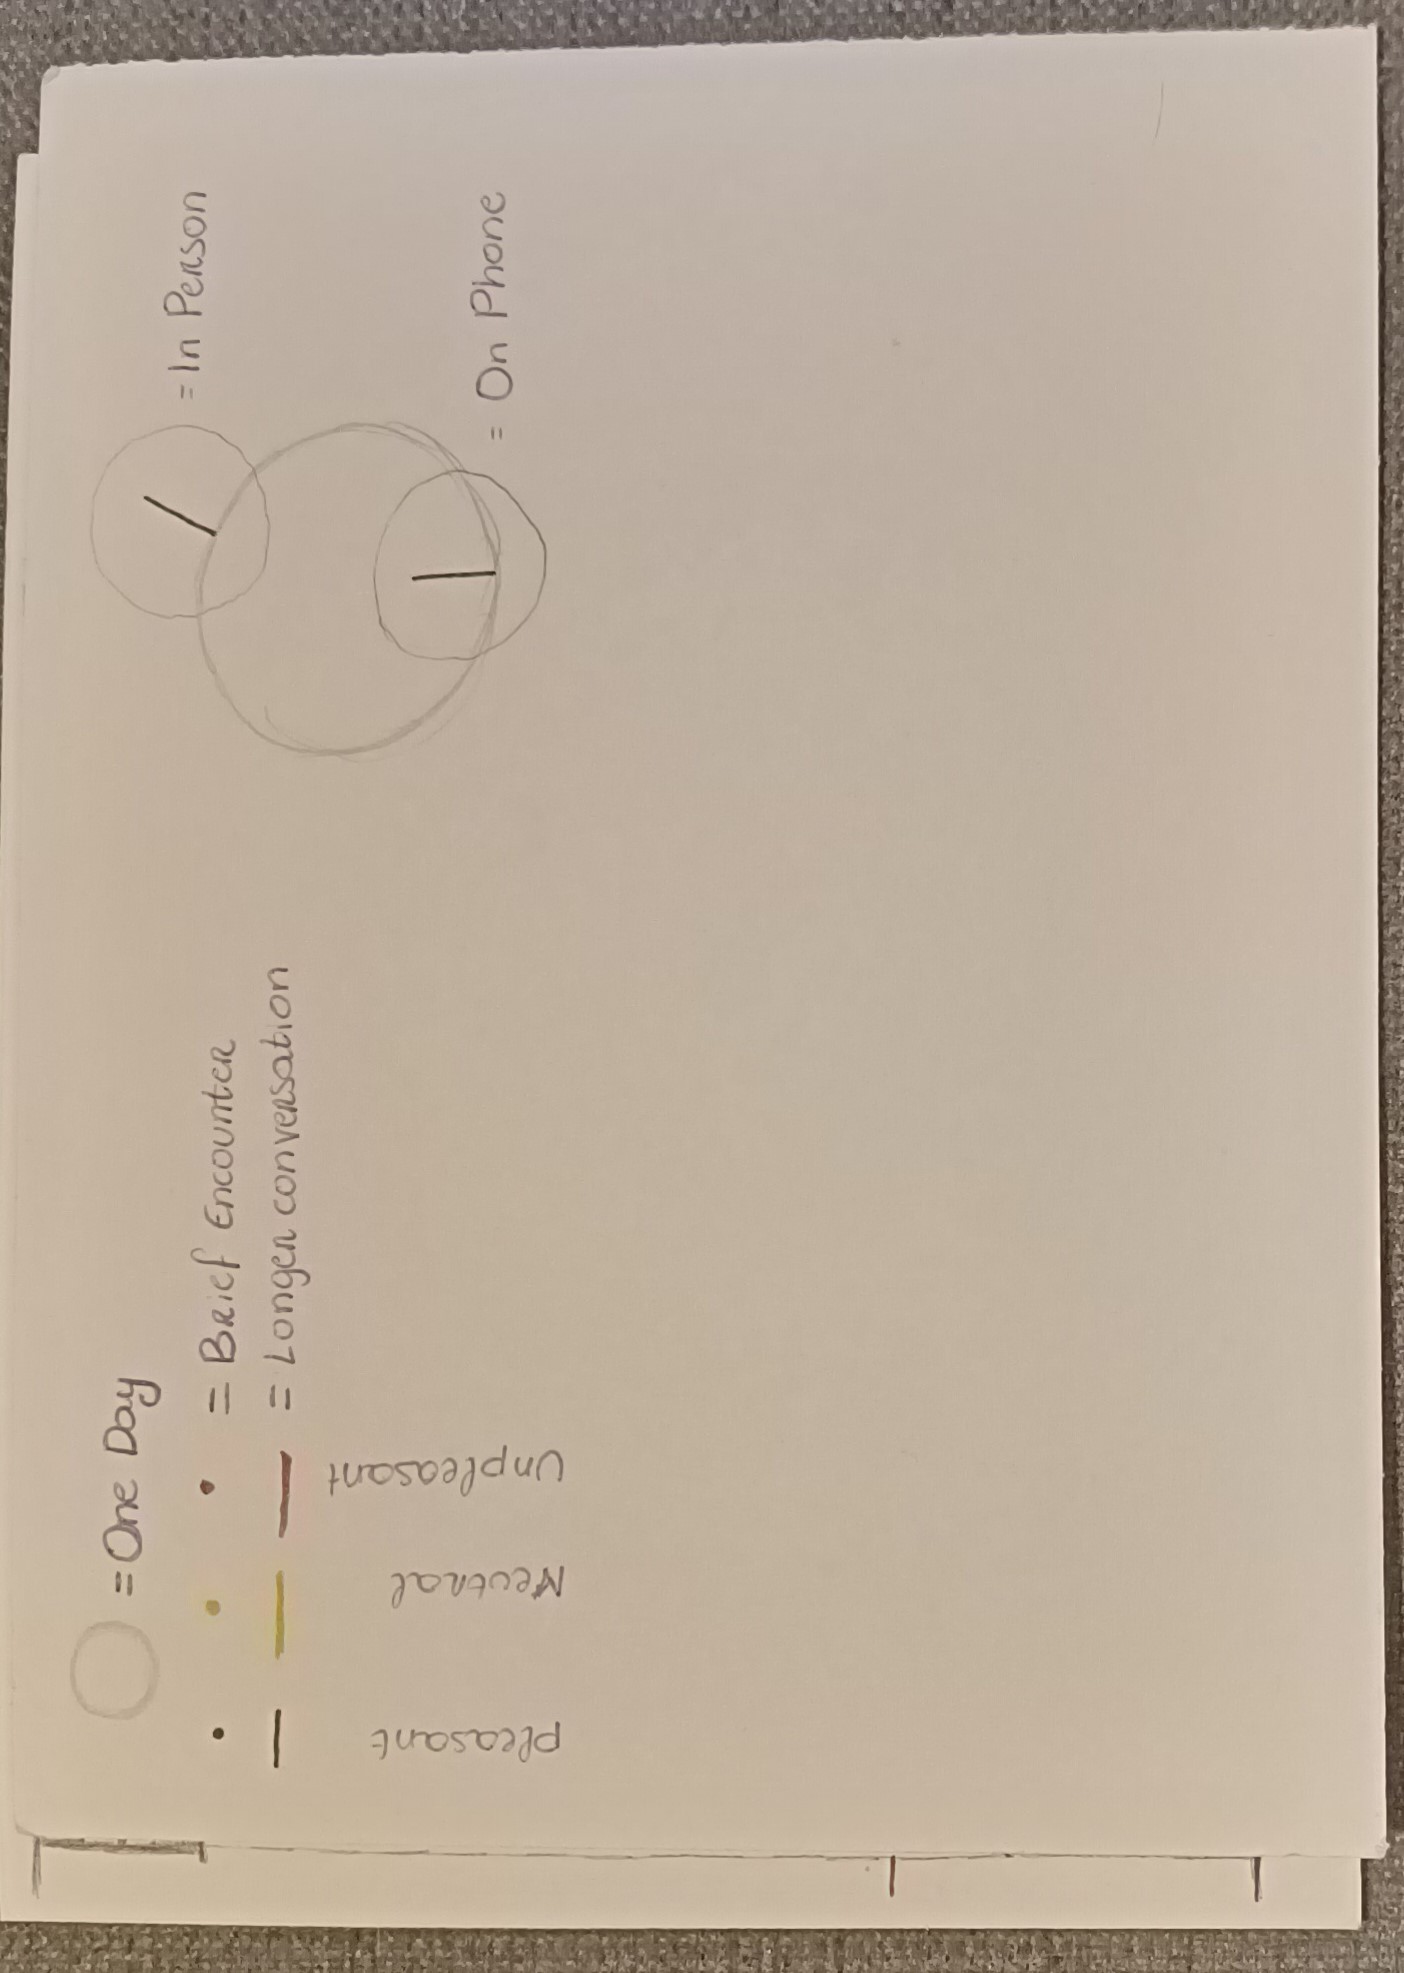 = One Day
= Brief Encounter
= Longer conversation
Pleasant
Neutral
Unpleasant
= In Person
= On Phone